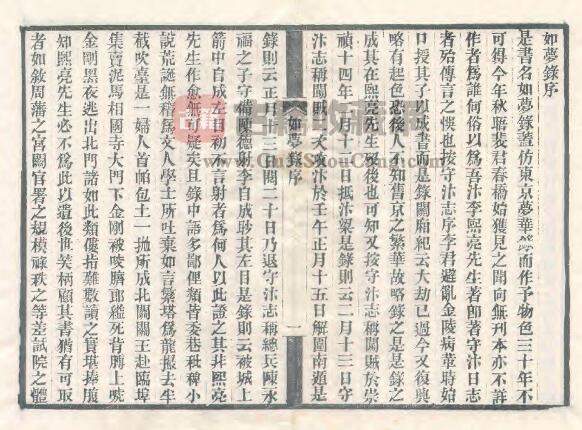 如夢錄序
是書名如夢錄葢仿東京夢華錄而作予物色三十年不
可得今年秋聒裴君春橋始獲見之聞向無刊本亦不詳
作者爲誰何俗以爲吾汴李熙亮先生著卽著守汴日志
者殆傳言之悞也按守汴志序李君避亂金陵病革時始
口授其子以成書而是錄闕廟紀云大劫已過今又復興
略有起色恐後人不知舊京之繁華故略錄之是是錄之
成其在熙亮先生歿後也可知又按守汴志稱闖賊於崇
禎十四年二月十二日抵汴梁是錄則云二月十三日守
汴志稱闖賊三次攻汴於壬午正月十五日解圍南遁是
如夢錄序
一
錄則云正月初三日閧二十日乃退守汴志稱總兵陳永
福之子守備陳德射李自成眇其左目是錄則云被城上
箭中自成左目初不言射者爲何人以此證之其非熙亮
先生作愈無可疑矣且錄中語多鄙俚類皆委巷秕稗小
說荒誕無稽爲文人學士所吐棄如言繁塔爲龍撮去半
截吹臺是一婦人首帕包土一拋所成北關關王赴臨埠
集賣泥馬相國寺大門下金剛被咬臍郎縊死背膊上唬
金剛黑夜逃出北門諸如此類僂指難數讀之實堪捧腹
知熙亮先生必不爲此以遺後世笑柄顧其書猶有可取
者如敘周藩之宮闕官署之規模祿秩之等差試院之體